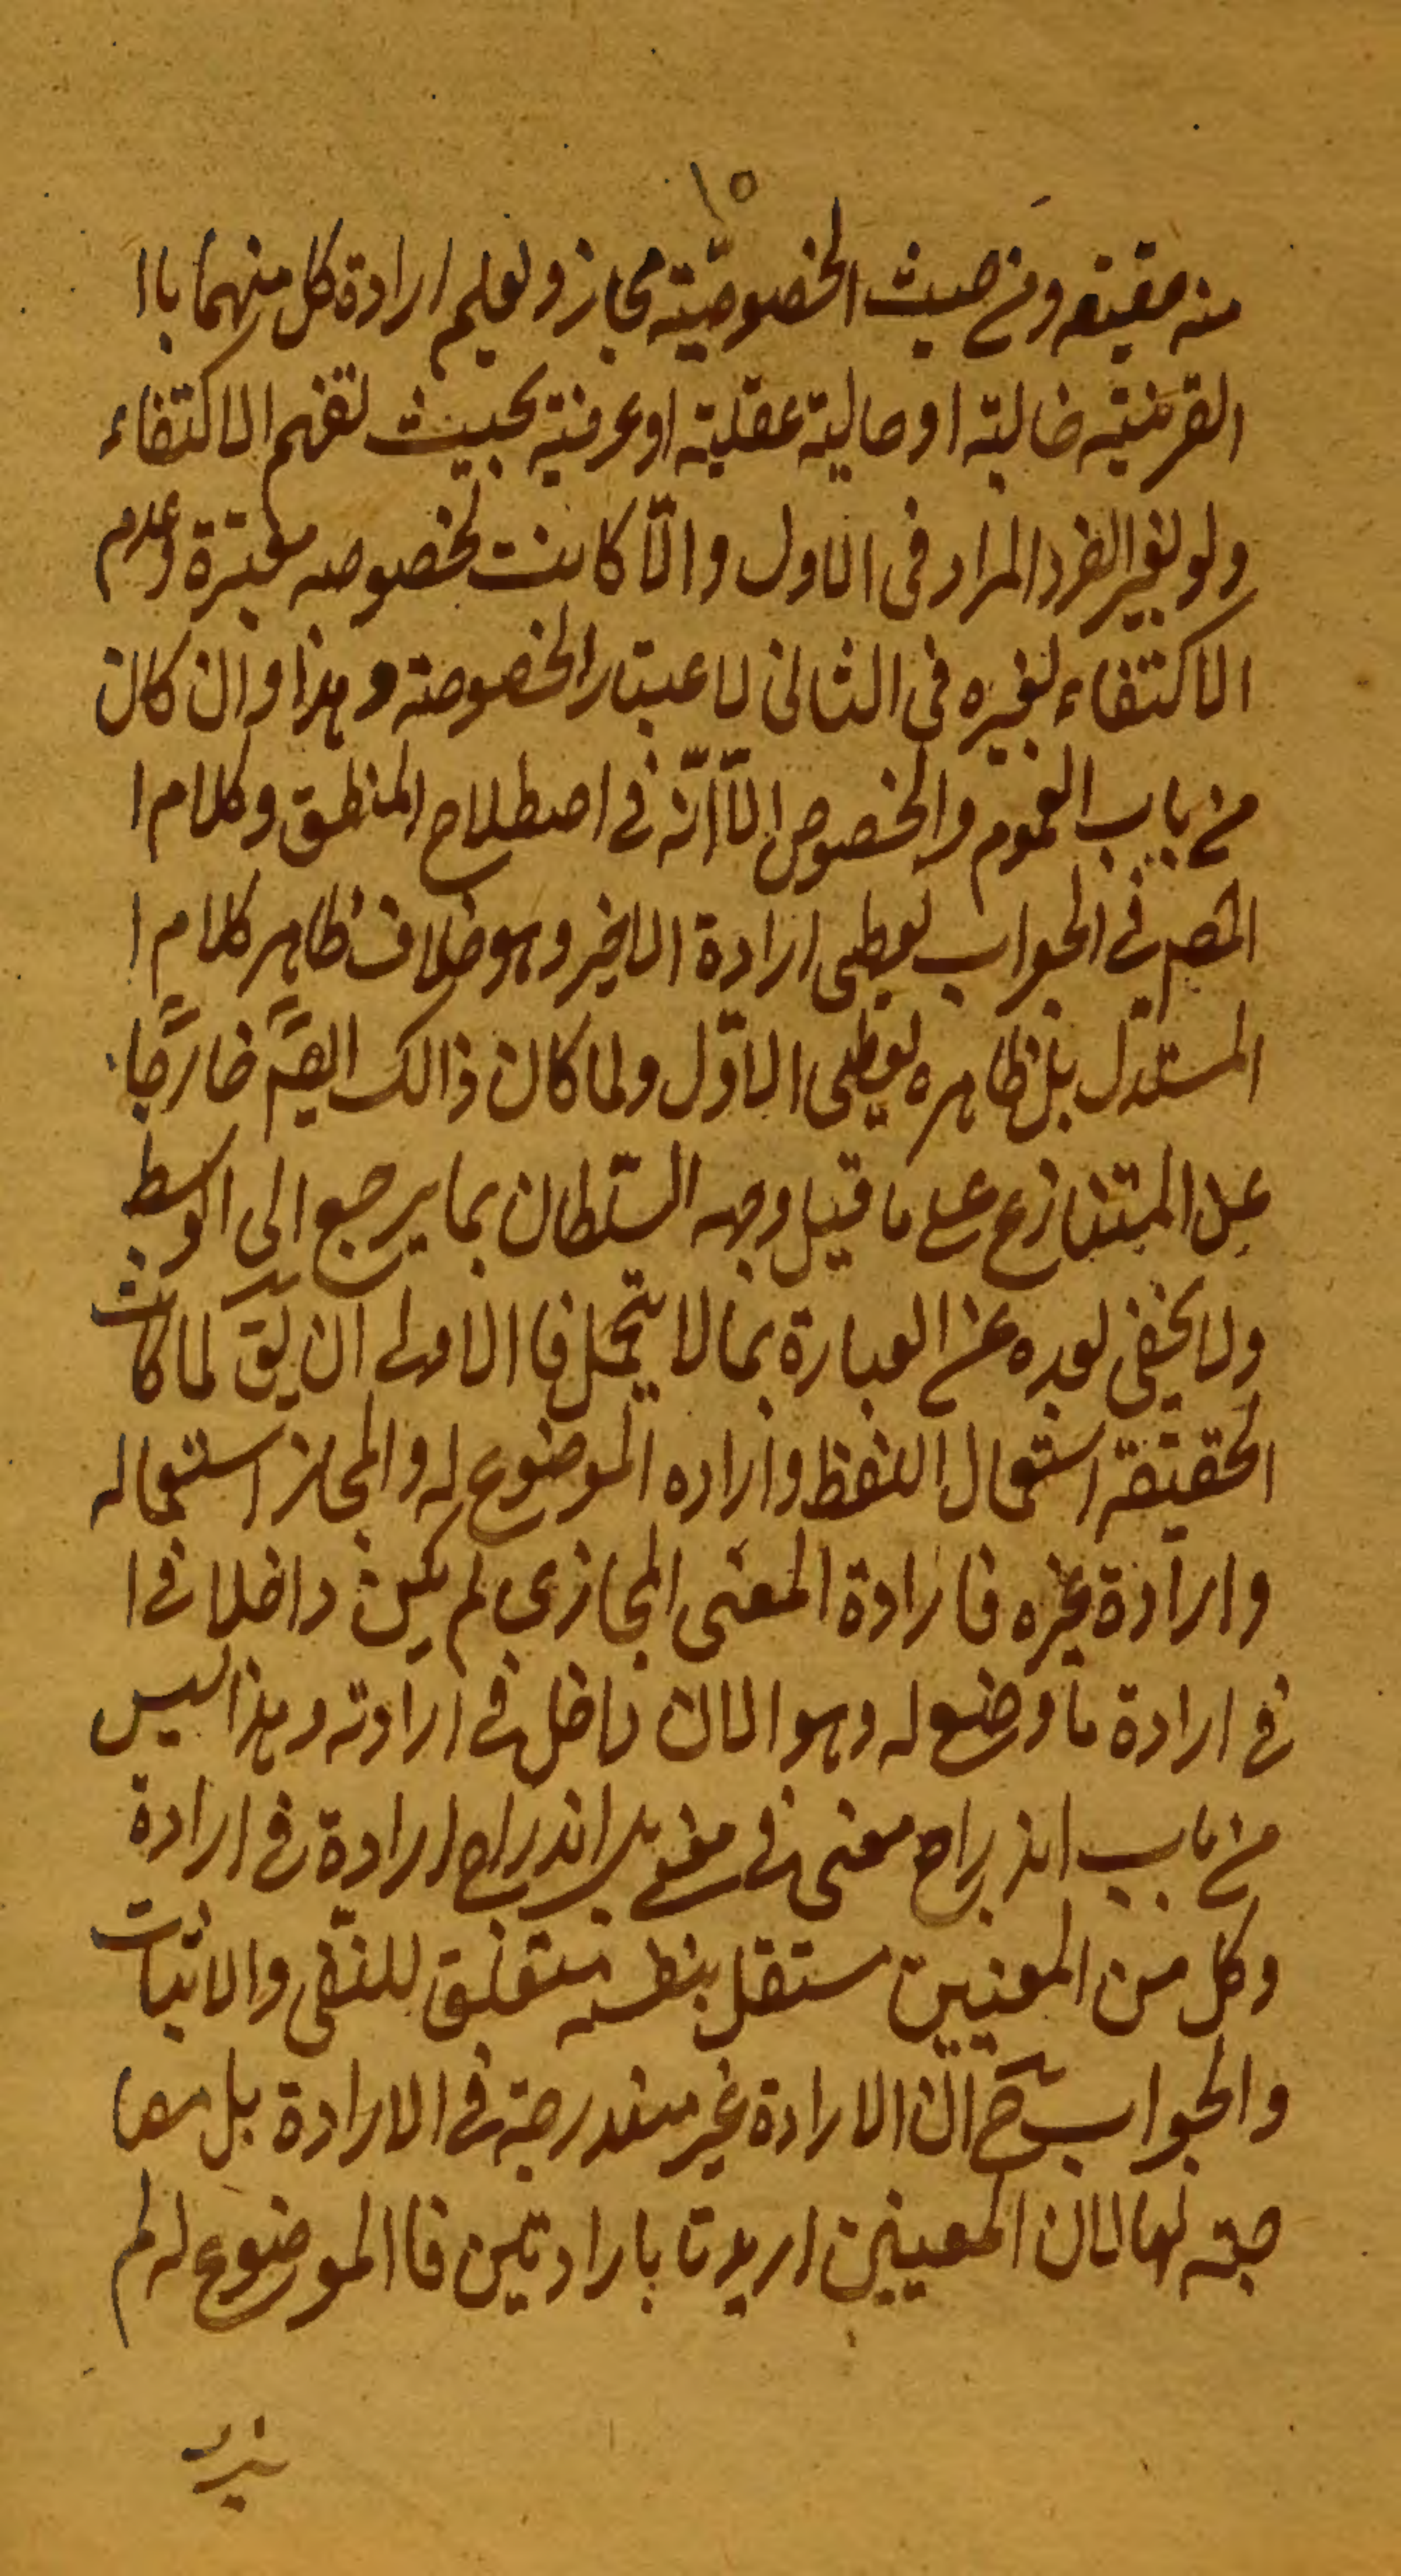 ١٥
منه حقيقه ومن حيث الخصوصيّته مجاز ولعلم ارادة كل منهما باا
القرينيته خالية او حالية عقليّة او عرفية بحيث لفهم الاكتفاء
ولو لغير الفرد المراد فى الاول والّا كانت لخصوصه معتبرة وعدم
الاكتفاء لغيره فى الثانى لاعتبار الخصوصته وهذا وان كان
من باب العموم والخصوص الّا انّه فى اصطلاح المنطق وكلام ا
المصم فى الجواب لعطى ارادة الاخير وهو خلاف ظاهر كلام ا
المستدّل بل ظاهره لعطى الاوّل ولما كان ذالك ايضًا خارجًا
عن المتنازع على ما قيل وجهه السّلطان بما يرجع الى اوسط
ولا يخفى لعده عن العبارة بما لا يتحمل فا الاولى ان يق لما كانت
الحقيقة استعمال اللفظ وارادة الموضوع له والمجاز استعماله
وارادة غيره فا رادة المعنى المجازي لم يكن داخلا فى ا
فى ارادة ما وضع له وهو الان داخل فى ارادته وهذا ليس
من باب اندراج معنى فى معنى بل اندراج ارادة فى ارادة
وكل من المعنيين مستقل بنفسه متعلق للنّفى والاثبات
والجواب ح ان الارادة غير مندرجة فى الارادة بل مصا
حبته لها لان المعنيين اريدتا بارادتين فا الموضوع له لم
يرد